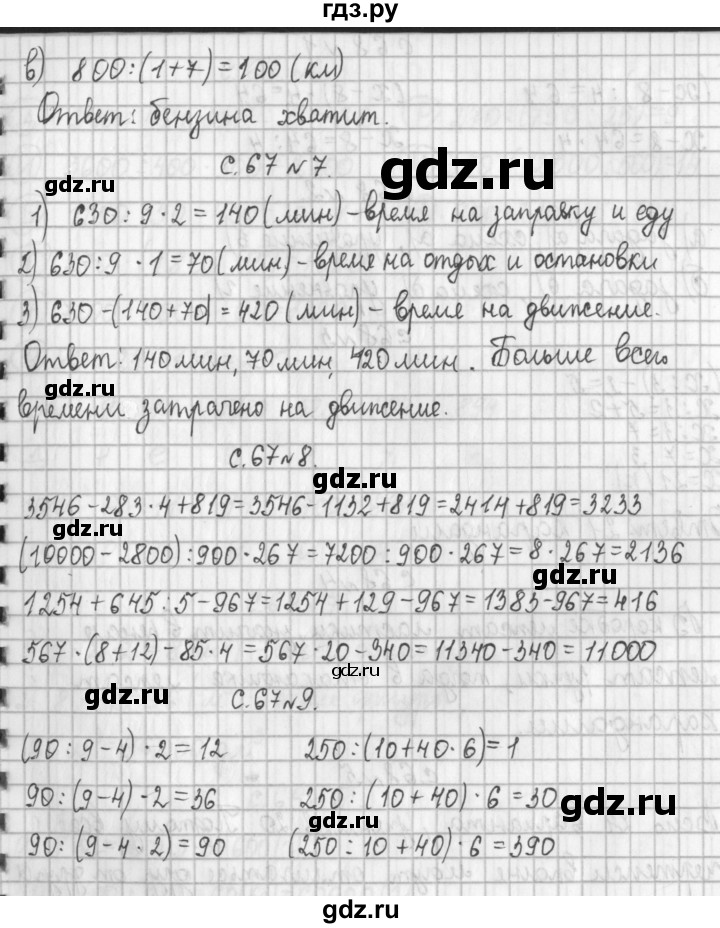 гдз.ру
в) 800:(1+7)=100(км)
Ответ: бензина хватит.
с.67 №7.
gdz.ru
gdz.ru
1) 630:9·2=140(мин)-время на заправку и еду
2) 630:9·1=70(мин)-время на отдых и остановки
gdz.ru
3) 630-(140+70)=420(мин)-время на движение.
Ответ: 140мин, 70мин, 420мин. Больше всего
gdz.ru
gdz.ru
времени затрачено на движение.
с.67№8.
gdz.ru
3546-283·4+819=3546-1132+819=2414+819=3233
gdz.ru
(10000-2800):900·267=7200:900·267=8·267=2136
gdz.ru
1254+645:5-967=1254+129-967=1383-967=416
567·(8+12)-85·4=567·20-340=11340-340=11000
gdz.ru
gdz.ru
с.67№9.
(90:9-4)·2=12 250:(10+40·6)=1
90:(9-4)·2=36 250:(10+40)·6=30
gdz.ru
gdz.ru
90:(9-4·2)=90 (250:10+40)·6=390
gdz.ru